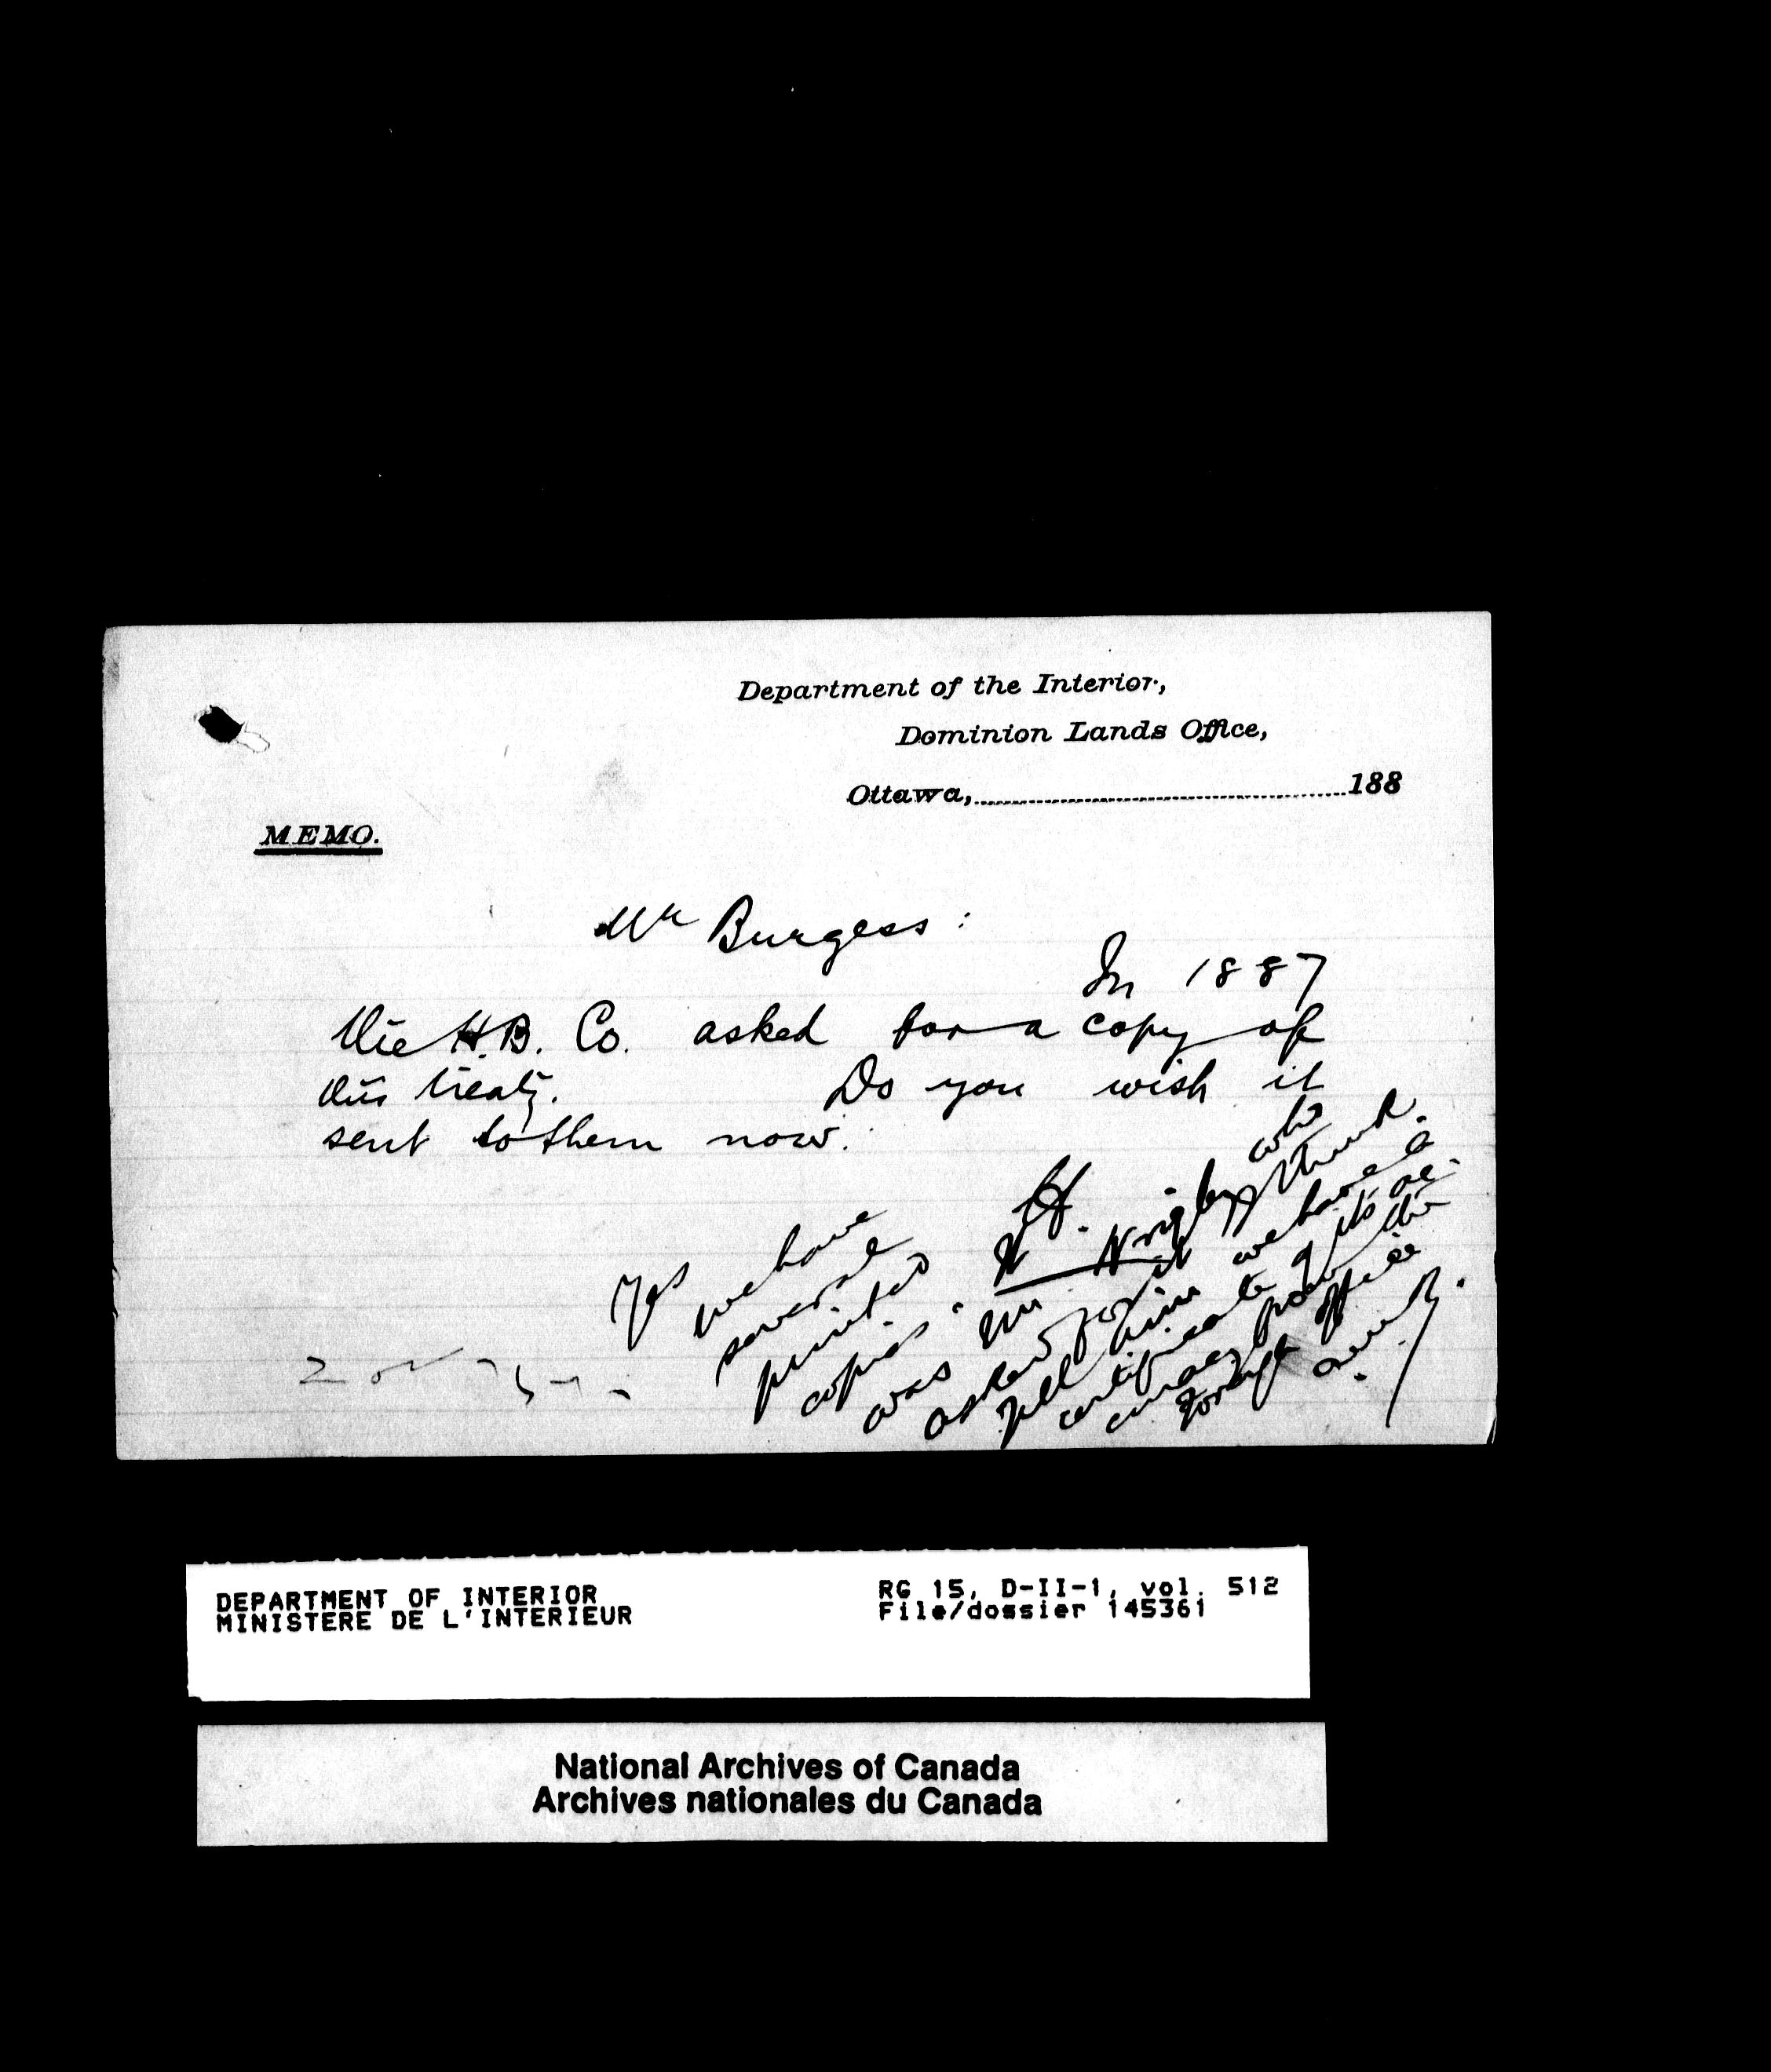 Department of the Interior,
Dominion Lands Office,
Ottawa, 188
MEMO.
Mr Burgess:
In 1887
the H.B. Co. asked for a copy of
this treaty. Do you wish it
sent to them now.
Yes
we have
several
printed
copies.
was Mr Wrigley who
asked for it I think.
Tell him we have a
certificate of its
from
Foreign Office
DEPARTMENT OF INTERIOR
MINISTERE DE L'INTERIEUR
RG 15, D-II-1, vol. 512
File/dossier 145361
National Archives of Canada
Archives nationales du Canada